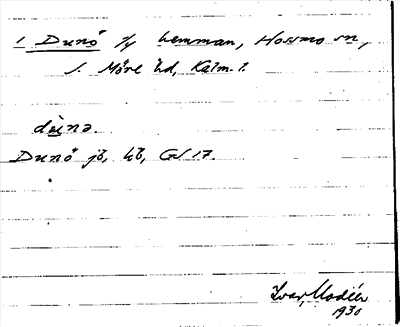 1 Dunö 3/4 hemman, Hossmo sn,
S. Möre hd, Kalm. l.
dùnə.
Dunö jb, kb, GS 17.
Ivar Modéer
1930